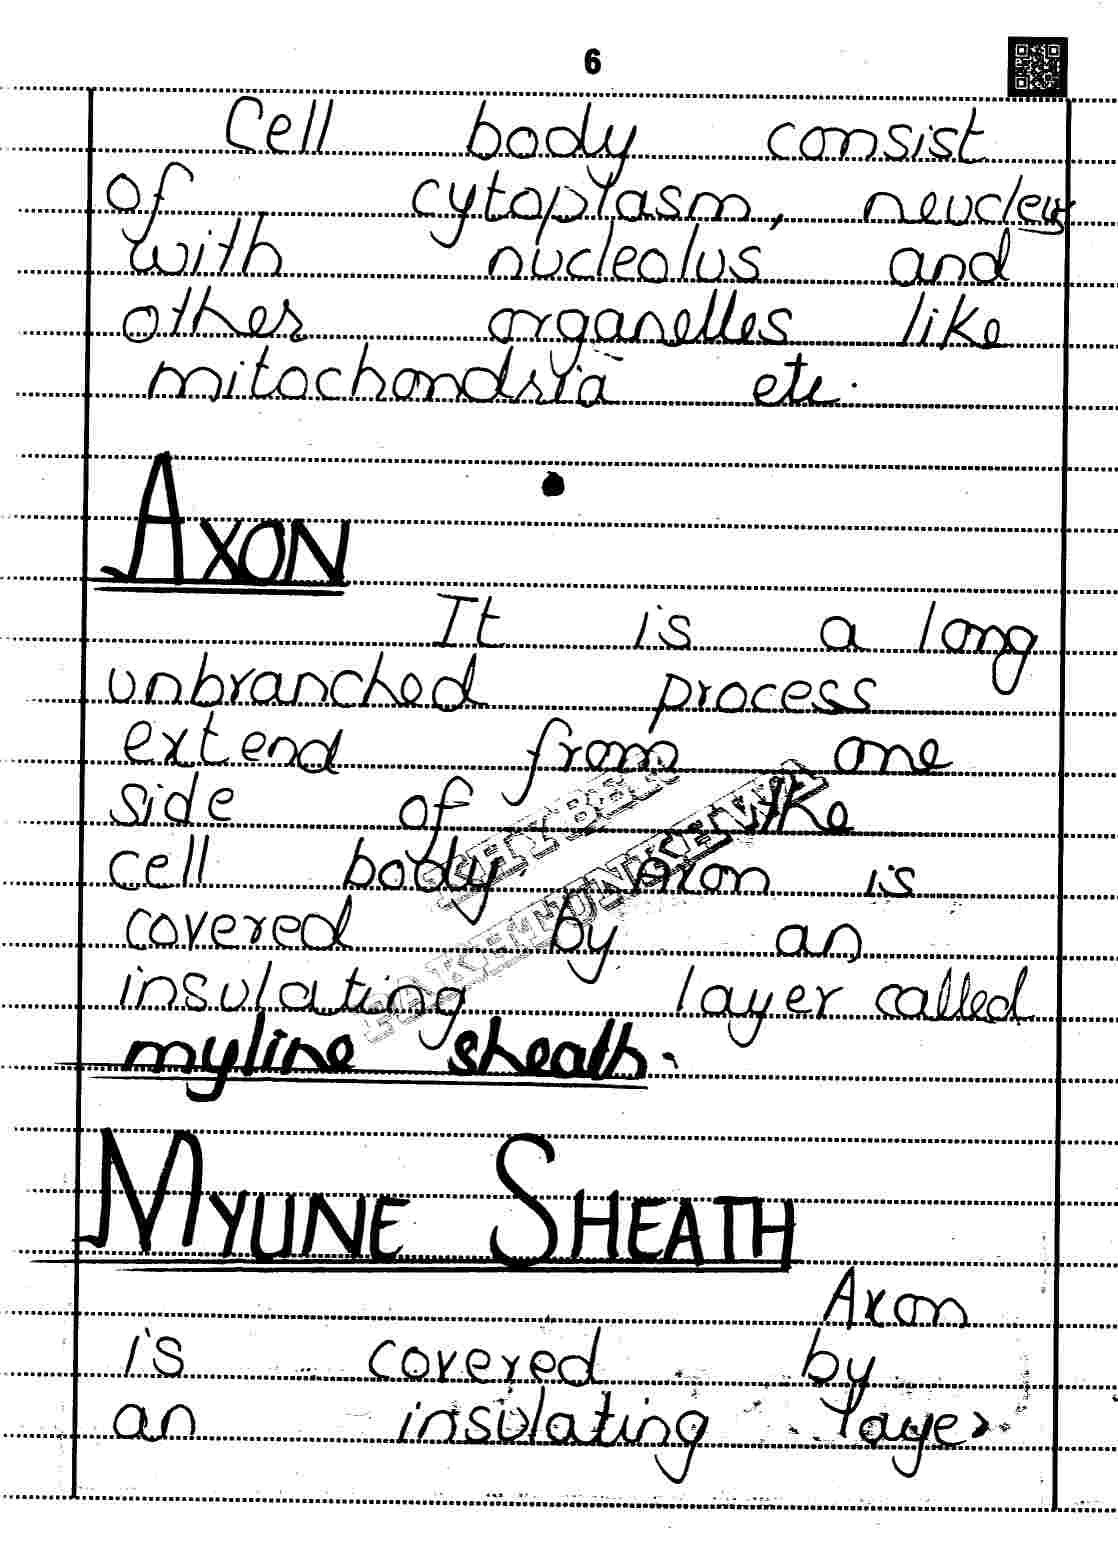 6
Cell body consist
of cytoplasm, neucleus
with nucleolus and
other organelles like
mitochondria etc.
AXON
It is a long
unbranched process
extend from one
side of the
cell body. Axon is
covered by an
insulating layer called
myline sheath.
MYLINE SHEATH
Axon
is covered by
an insulating layer
KHYBER
PAKHTUNKHWA